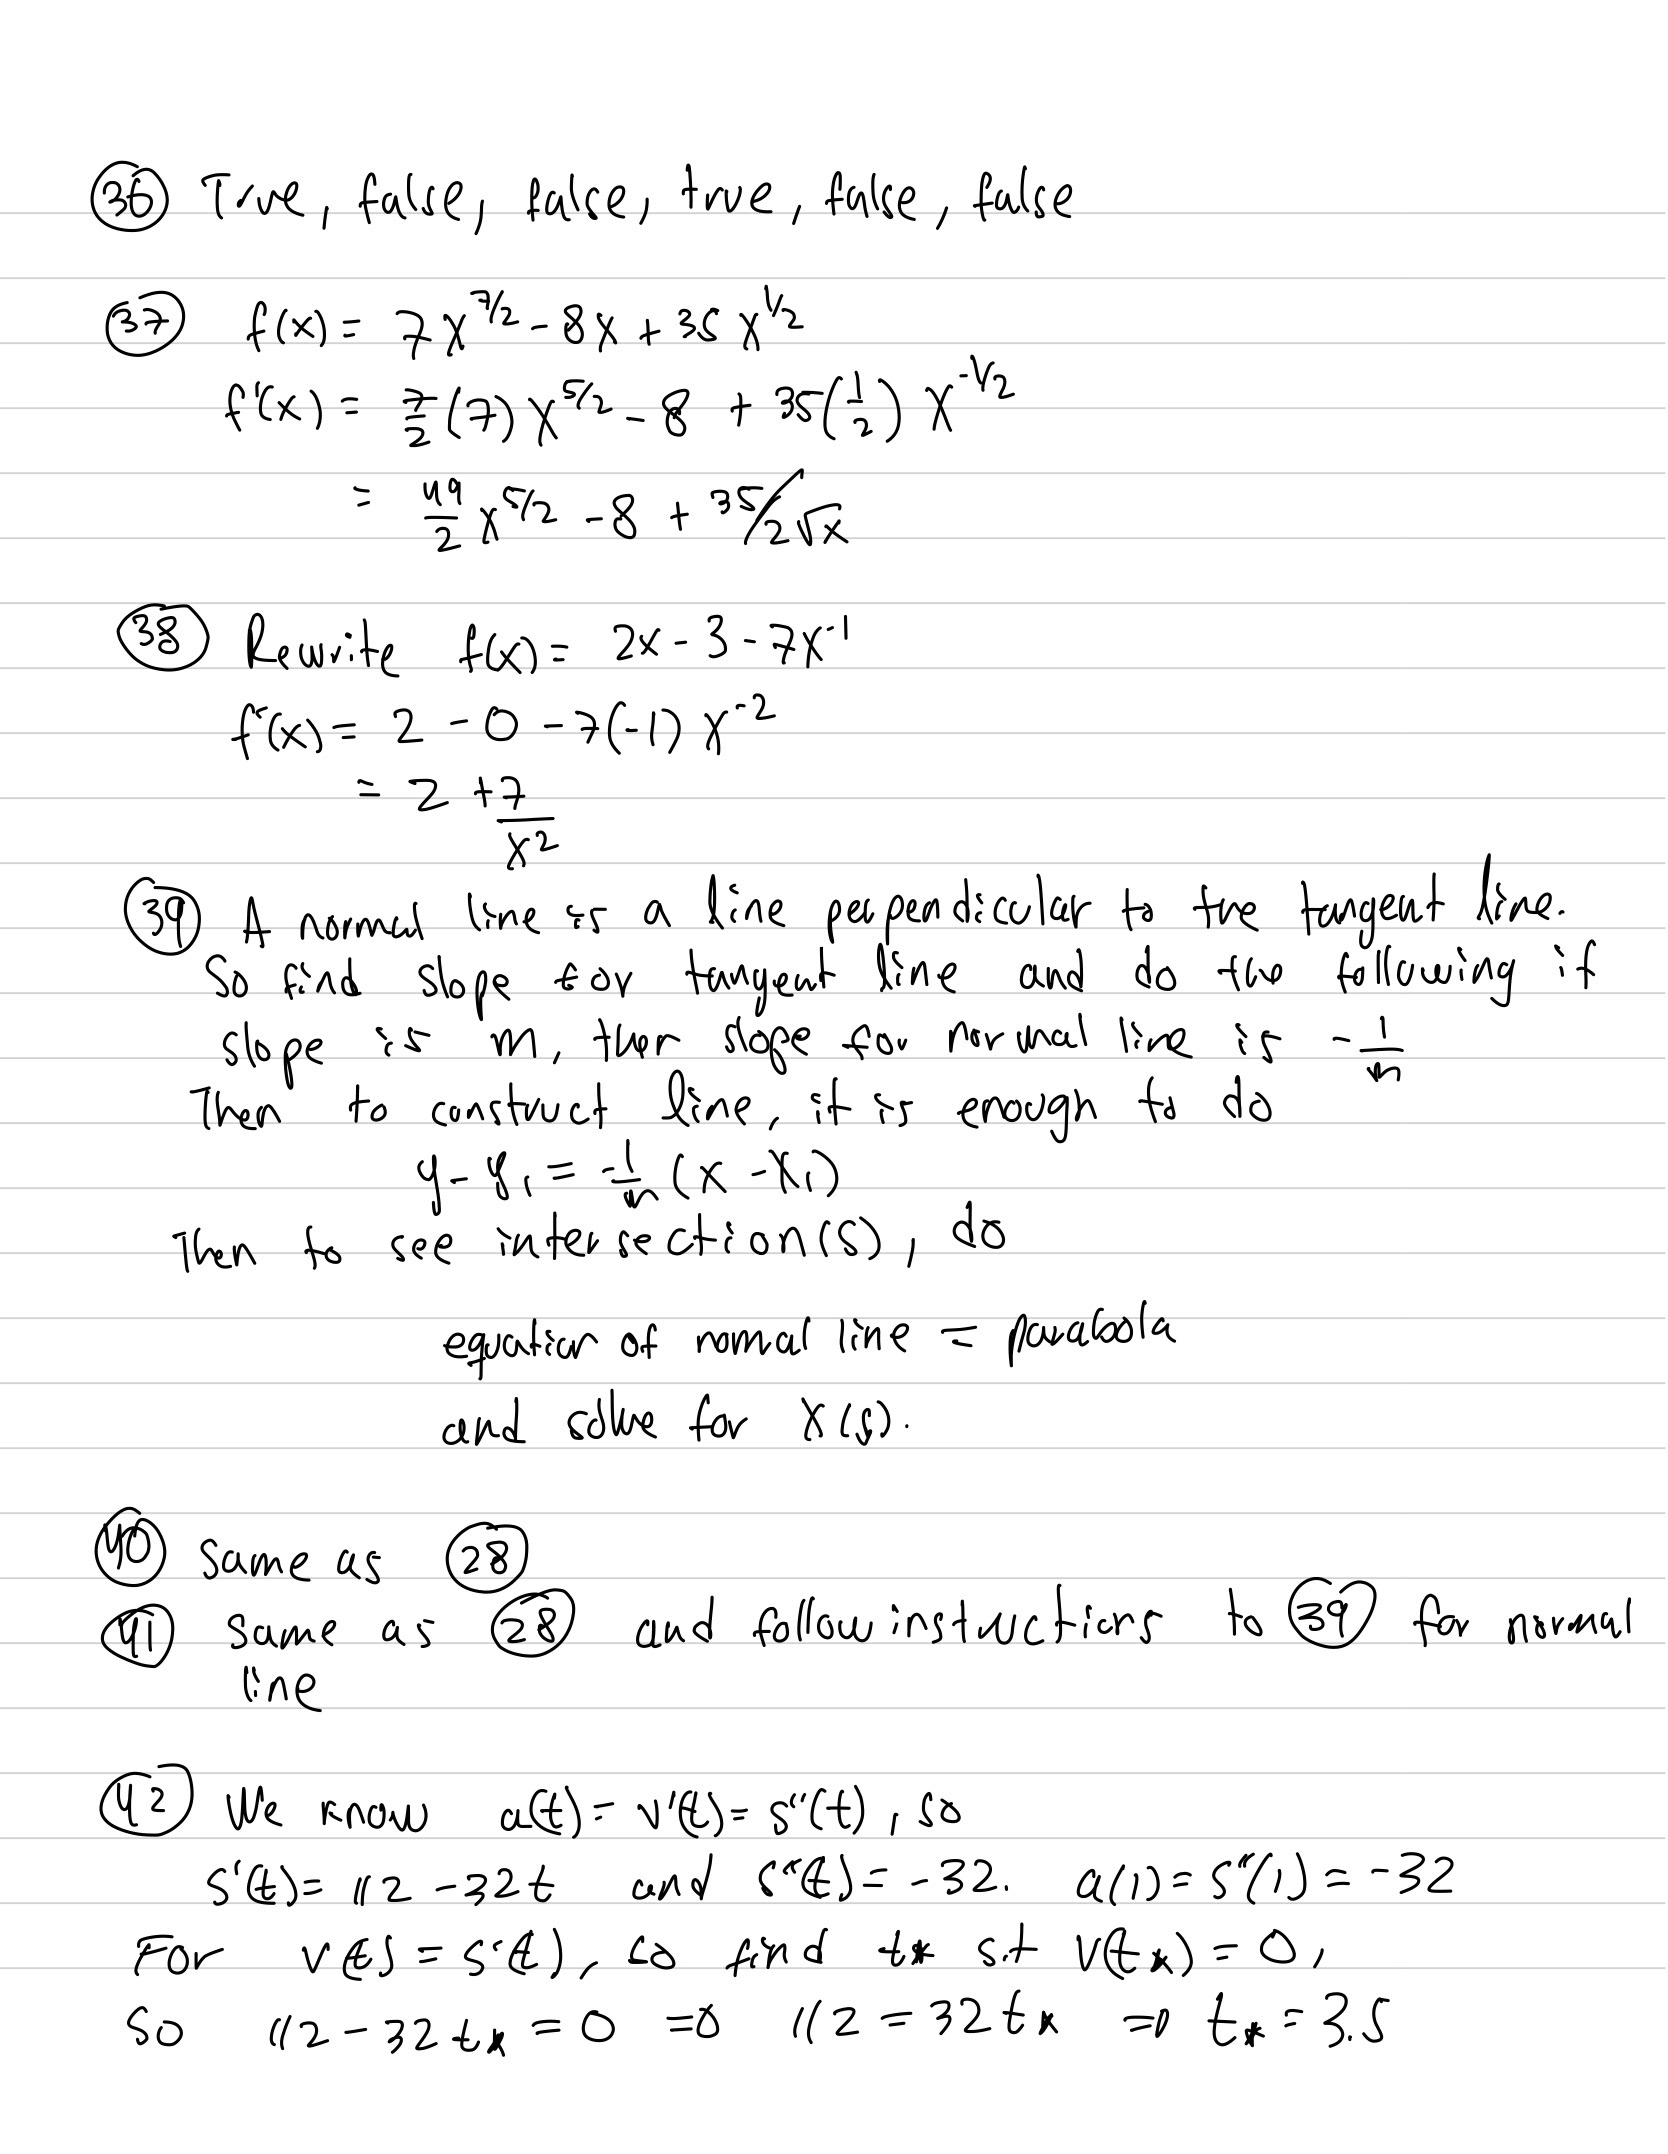 (36) True, false, false, true, false, false
(37) f(x) = 7x^{7/2} - 8x + 35 x^{1/2}
f'(x) = 7/2 (7) x^{5/2} - 8 + 35(1/2) x^{-1/2}
= 49/2 x^{5/2} - 8 + 35/2√x
(38) Rewrite f(x) = 2x - 3 - 7x^{-1}
f'(x) = 2 - 0 - 7(-1) x^{-2}
= 2 + 7/x^2
(39) A normal line is a line perpendicular to the tangent line.
So find slope for tangent line and do the following if
slope is m, then slope for normal line is - 1/m
Then to construct line, it is enough to do
y - y_1 = -1/m (x - x_1)
Then to see intersection(s), do
equation of normal line = parabola
and solve for x(s).
(40) Same as (28)
(41) Same as (28) and follow instructions to (39) for normal
line
(42) We know a(t) = v'(t) = s''(t), so
s'(t) = 112 - 32t and s''(t) = -32. a(1) = s''(1) = -32
For v(t) = s'(t), so find t* s.t v(t*) = 0,
so 112 - 32t* = 0 ⇒ 112 = 32t* ⇒ t* = 3.5